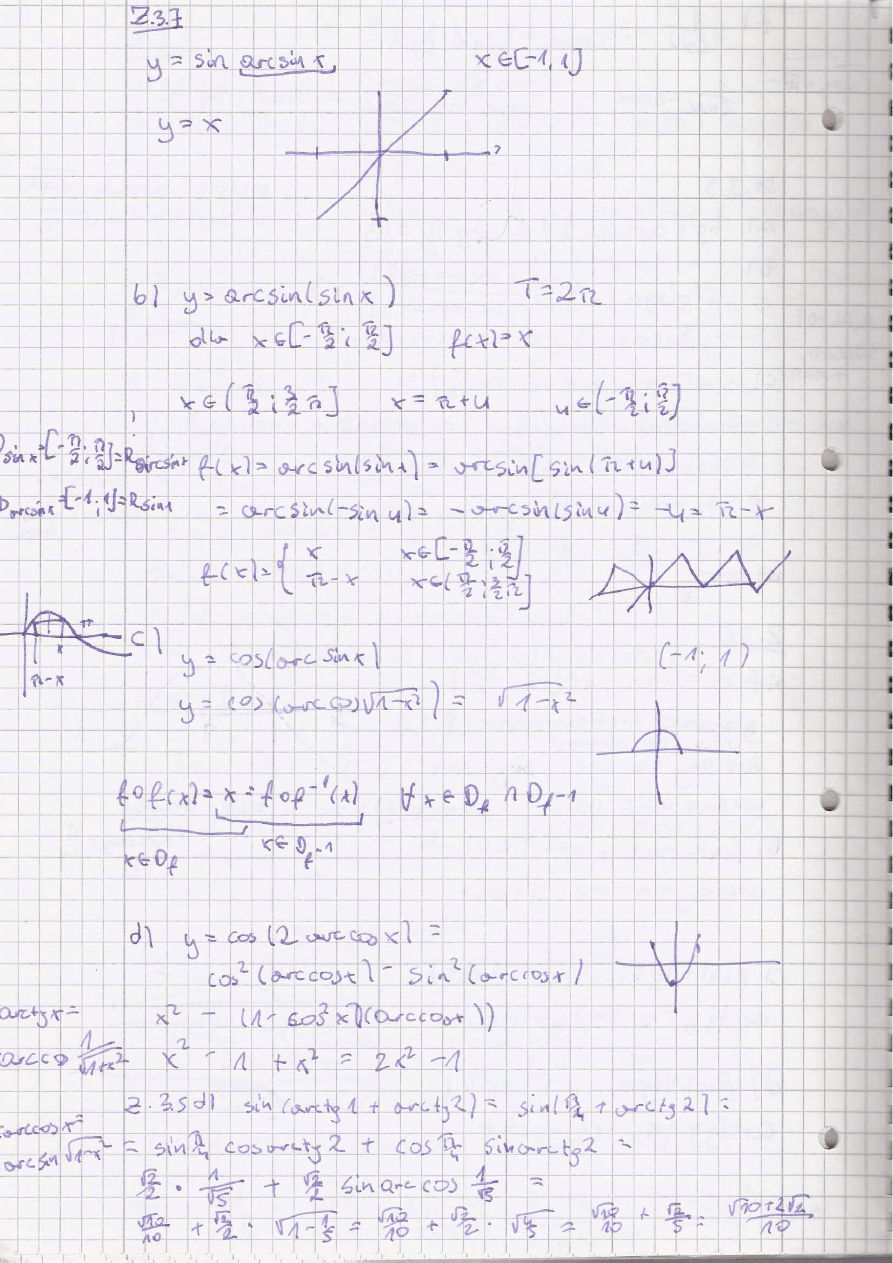 Z.3.7
y = sin arcsin x, x∈[-1, 1]
y = x
b) y = arcsin(sin x) T = 2π
dla x∈[-π/2 ; π/2] f(x) = x
x∈(π/2 ; 3/2 π] x = π+u u∈(-π/2 ; π/2]
D sin x = [-π/2 ; π/2] = R arcsin x
f(x) = arcsin(sin x) = arcsin[sin(π+u)]
D arcsin x = [-1 ; 1] = R sin x
= arcsin(-sin u) = -arcsin(sin u) = -u = π-x
f(x) = { x x∈[-π/2 ; π/2]
π-x x∈(π/2 ; 3/2 π]
π
x
π-x
c) y = cos(arc sin x) (-1 ; 1)
y = cos(arc cos √(1-x²)) = √(1-x²)
f o f(x) = x = f o f⁻¹(x) ∀ x ∈ D_f ∩ D_f-1
x∈D_f x∈D_f-1
d) y = cos(2 arc cos x) =
cos²(arccos x) - sin²(arccos x)
arctg x = x² - (1 - cos² x)(arccos x))
arc cos 1/√(1+x²) x² - 1 + x² = 2x² - 1
Z. 3.5 d) sin(arctg 1 + arctg 2) = sin(π/4 + arctg 2) =
arccos x =
arcsin √(1-x²) = sin π/4 cos arctg 2 + cos π/4 sin arctg 2 =
√2/2 · 1/√5 + √2/2 sin arc cos 1/√5 =
√10/10 + √2/2 · √(1-1/5) = √10/10 + √2/2 · √(4/5) = √10/10 + √2/5 = √10+2√2/10